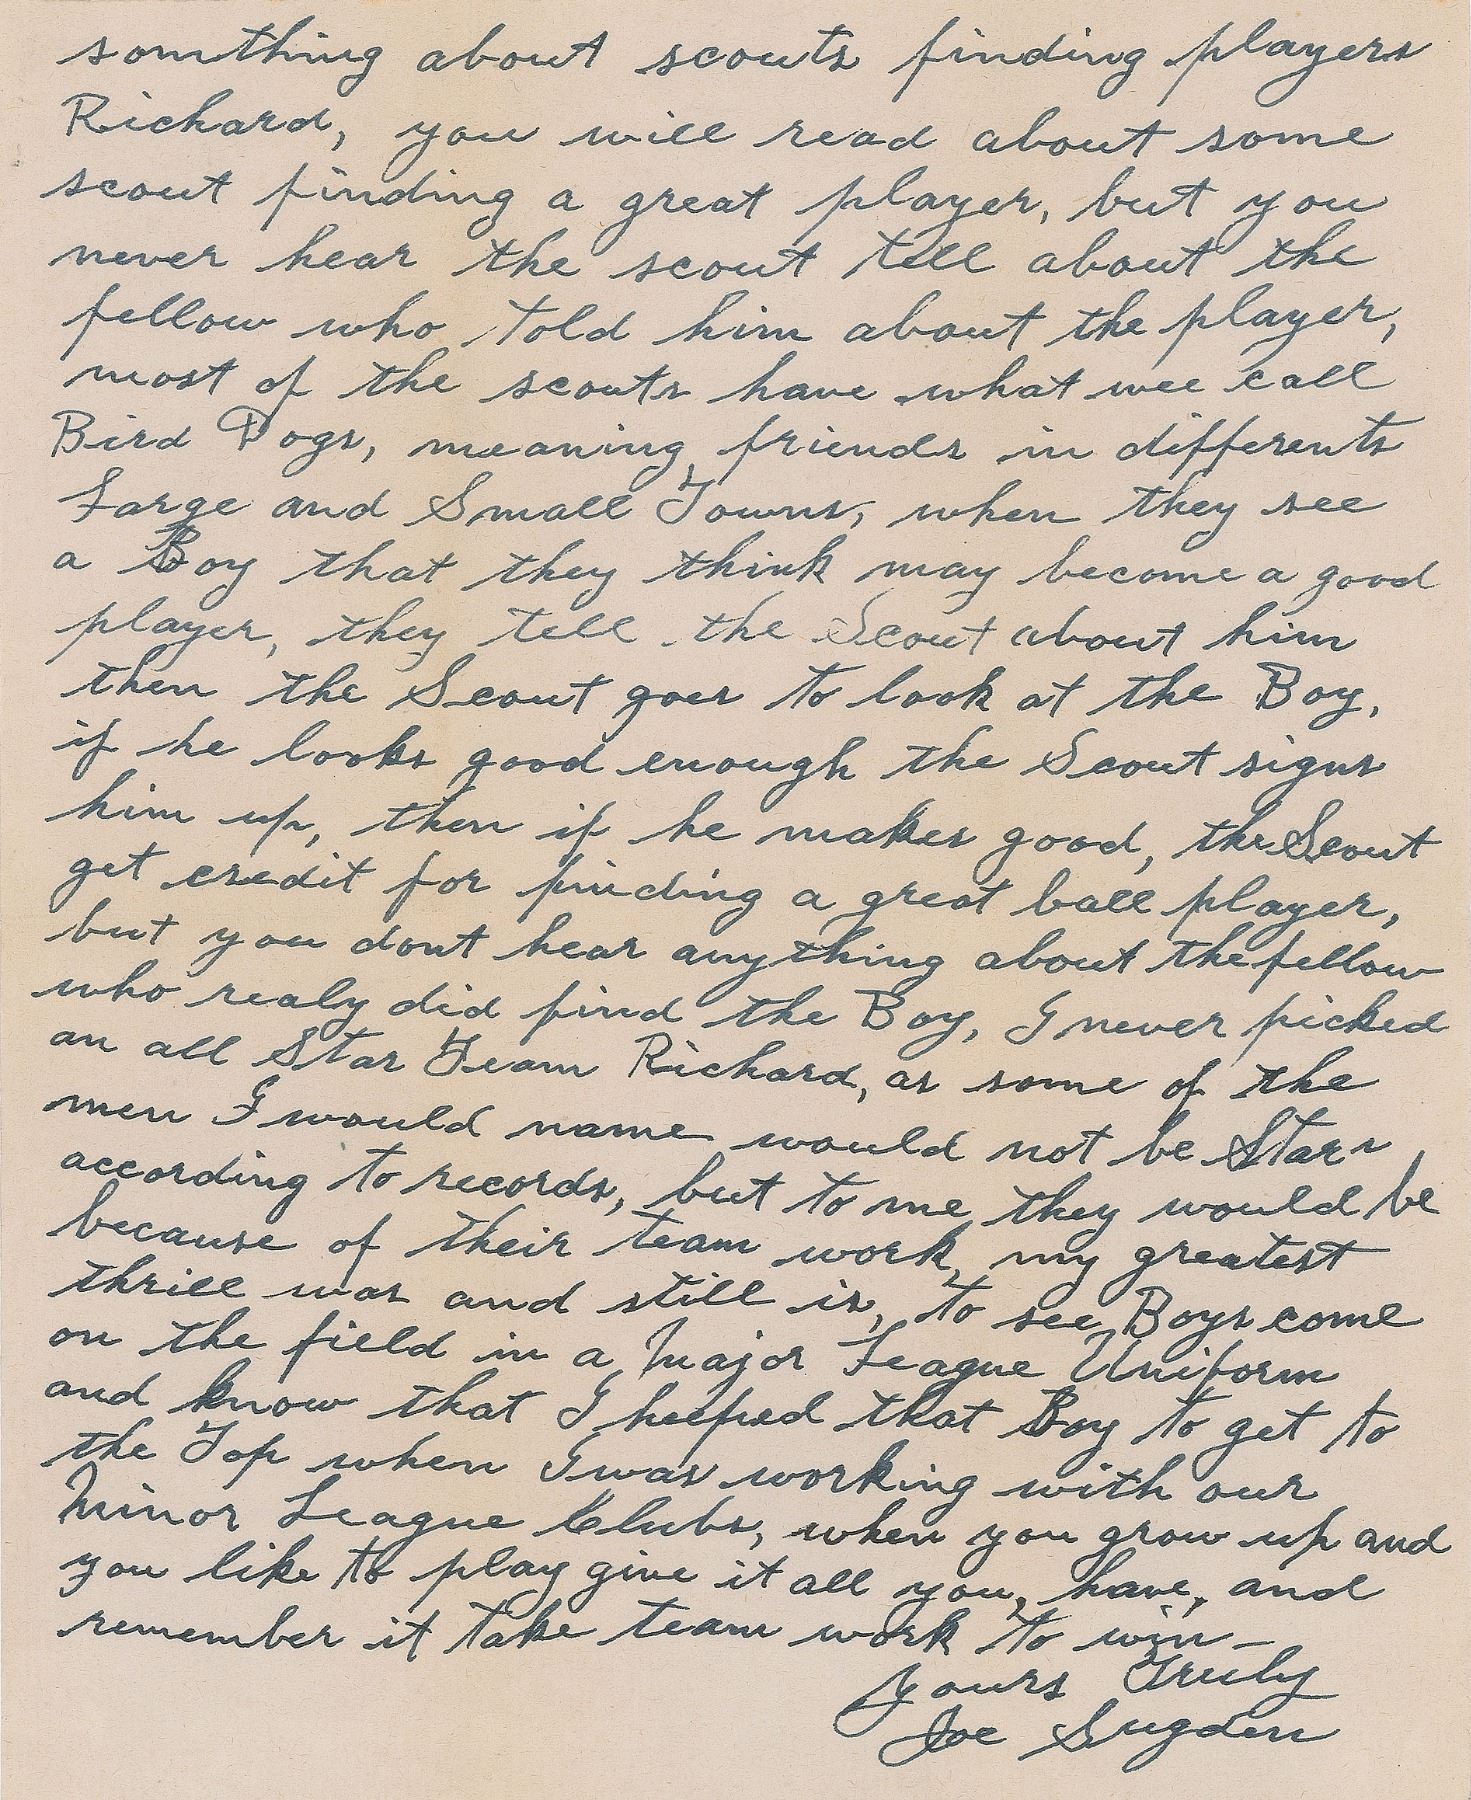 somthing about scouts finding players
Richard, you will read about some
scout finding a great player, but you
never hear the scout tell about the
fellow who told him about the player,
most of the scouts have what wee call
Bird Dogs, meaning friends in differents
Large and Small Towns, when they see
a Boy that they think may become a good
player, they tell the Scout about him
then the Scout goes to look at the Boy,
if he looks good enough the Scout signs
him up, then if he makes good, the Scout
get credit for finding a great ball player,
but you dont hear anything about the fellow
who realy did find the Boy, I never picked
an all Star Team Richard, as some of the
men I would name would not be Stars,
according to records, but to me they would be
because of their team work, my greatest
thrill was and still is, to see Boys come
on the field in a Major League Uniform
and know that I helped that Boy to get to
the Top when I was working with our
Minor League Clubs, when you grow up and
you like to play give it all you, have, and
remember it take team work to win-
Yours Truly
Joe Sugden